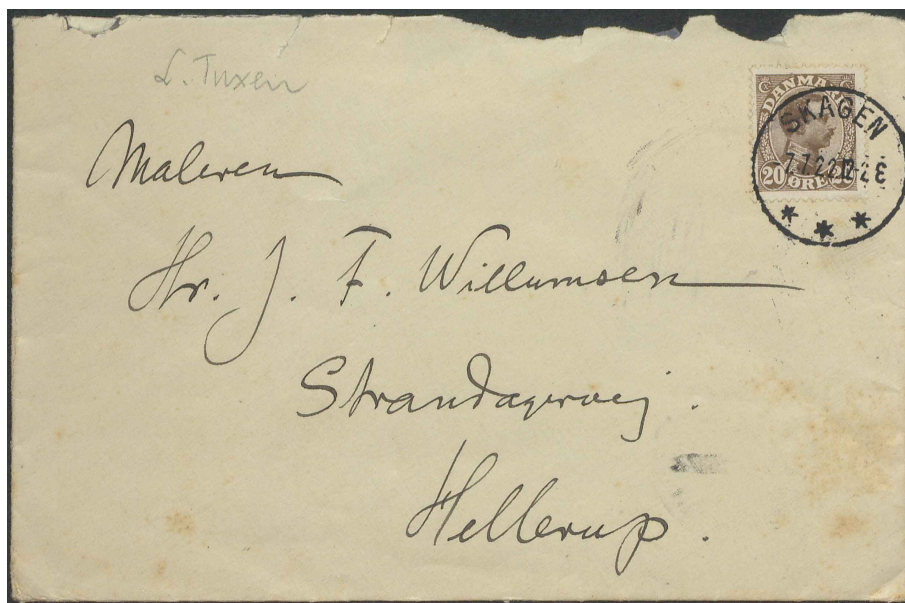 L. Tuxen
DANMARK
20 ØRE 20
SKAGEN
7.7.22 12-2 E
Maleren
Hr. J. F. Willumsen
Strandagervej.
Hellerup.